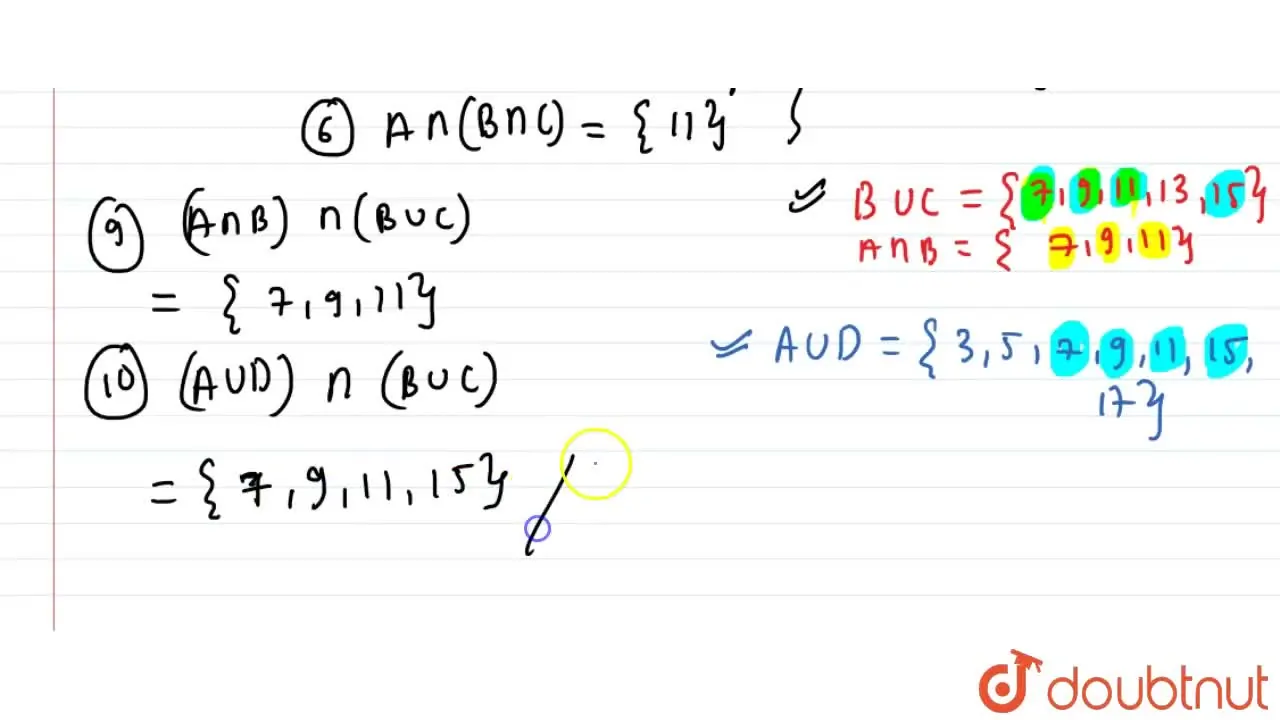 ⑥ A∩(B∩C) = {11} }
⑨ (A∩B) ∩ (B∪C)
= {7,9,11}
⑩ (A∪D) ∩ (B∪C)
= {7,9,11,15}
B∪C = {7,9,11,13,15}
A∩B = {7,9,11}
A∪D = {3,5,7,9,11,15,
17}
doubtnut